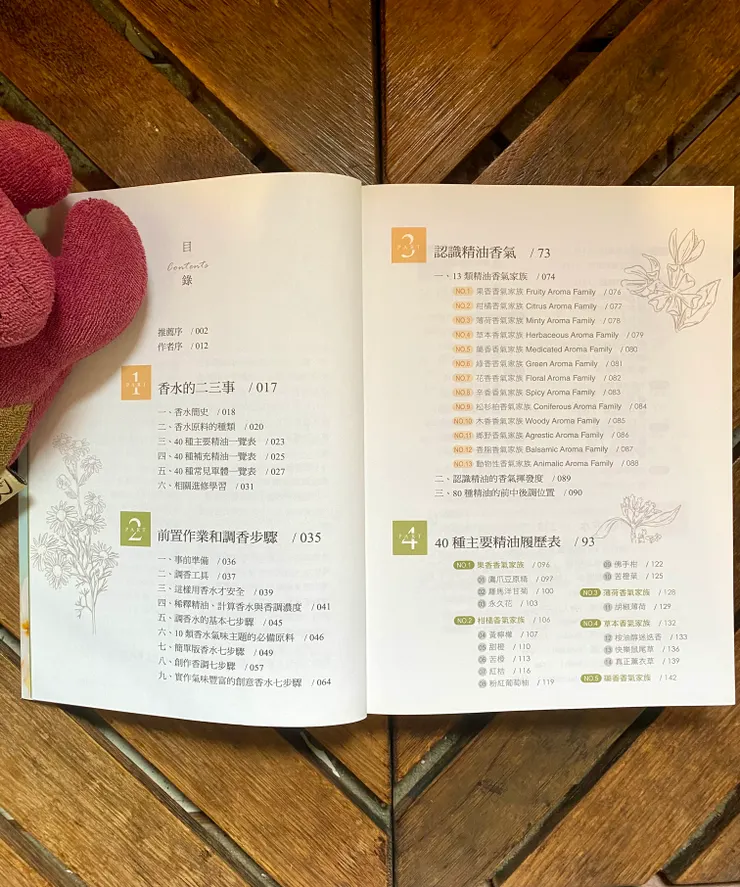 目
Contents
錄
推薦序 / 002
作者序 / 012
PART 1 香水的二三事 / 017
一、香水簡史 / 018
二、香水原料的種類 / 020
三、40 種主要精油一覽表 / 023
四、40 種補充精油一覽表 / 025
五、40 種常見單體一覽表 / 027
六、相關進修學習 / 031
PART 2 前置作業和調香步驟 / 035
一、事前準備 / 036
二、調香工具 / 037
三、這樣用香水才安全 / 039
四、稀釋精油、計算香水與香調濃度 / 041
五、調香水的基本七步驟 / 045
六、10 類香水氣味主題的必備原料 / 046
七、簡單版香水七步驟 / 049
八、創作香調七步驟 / 057
九、實作氣味豐富的創意香水七步驟 / 064
PART 3 認識精油香氣 / 73
一、13 類精油香氣家族 / 074
NO.1 果香香氣家族 Fruity Aroma Family / 076
NO.2 柑橘香氣家族 Citrus Aroma Family / 077
NO.3 薄荷香氣家族 Minty Aroma Family / 078
NO.4 草本香氣家族 Herbaceous Aroma Family / 079
NO.5 藥香香氣家族 Medicated Aroma Family / 080
NO.6 綠香香氣家族 Green Aroma Family / 081
NO.7 花香香氣家族 Floral Aroma Family / 082
NO.8 辛香香氣家族 Spicy Aroma Family / 083
NO.9 松杉柏香氣家族 Coniferous Aroma Family / 084
NO.10 木香香氣家族 Woody Aroma Family / 085
NO.11 鄉野香氣家族 Agrestic Aroma Family / 086
NO.12 香脂香氣家族 Balsamic Aroma Family / 087
NO.13 動物性香氣家族 Animalic Aroma Family / 088
二、認識精油的香氣揮發度 / 089
三、80 種精油的前中後調位置 / 090
PART 4 40 種主要精油履歷表 / 93
NO.1 果香香氣家族 / 096
01 鷹爪豆原精 / 097
02 羅馬洋甘菊 / 100
03 永久花 / 103
NO.2 柑橘香氣家族 / 106
04 黃檸檬 / 107
05 甜橙 / 110
06 苦橙 / 113
07 紅桔 / 116
08 粉紅葡萄柚 / 119
09 佛手柑 / 122
10 苦橙葉 / 125
NO.3 薄荷香氣家族 / 128
11 胡椒薄荷 / 129
NO.4 草本香氣家族 / 132
12 桉油醇迷迭香 / 133
13 快樂鼠尾草 / 136
14 真正薰衣草 / 139
NO.5 藥香香氣家族 / 142